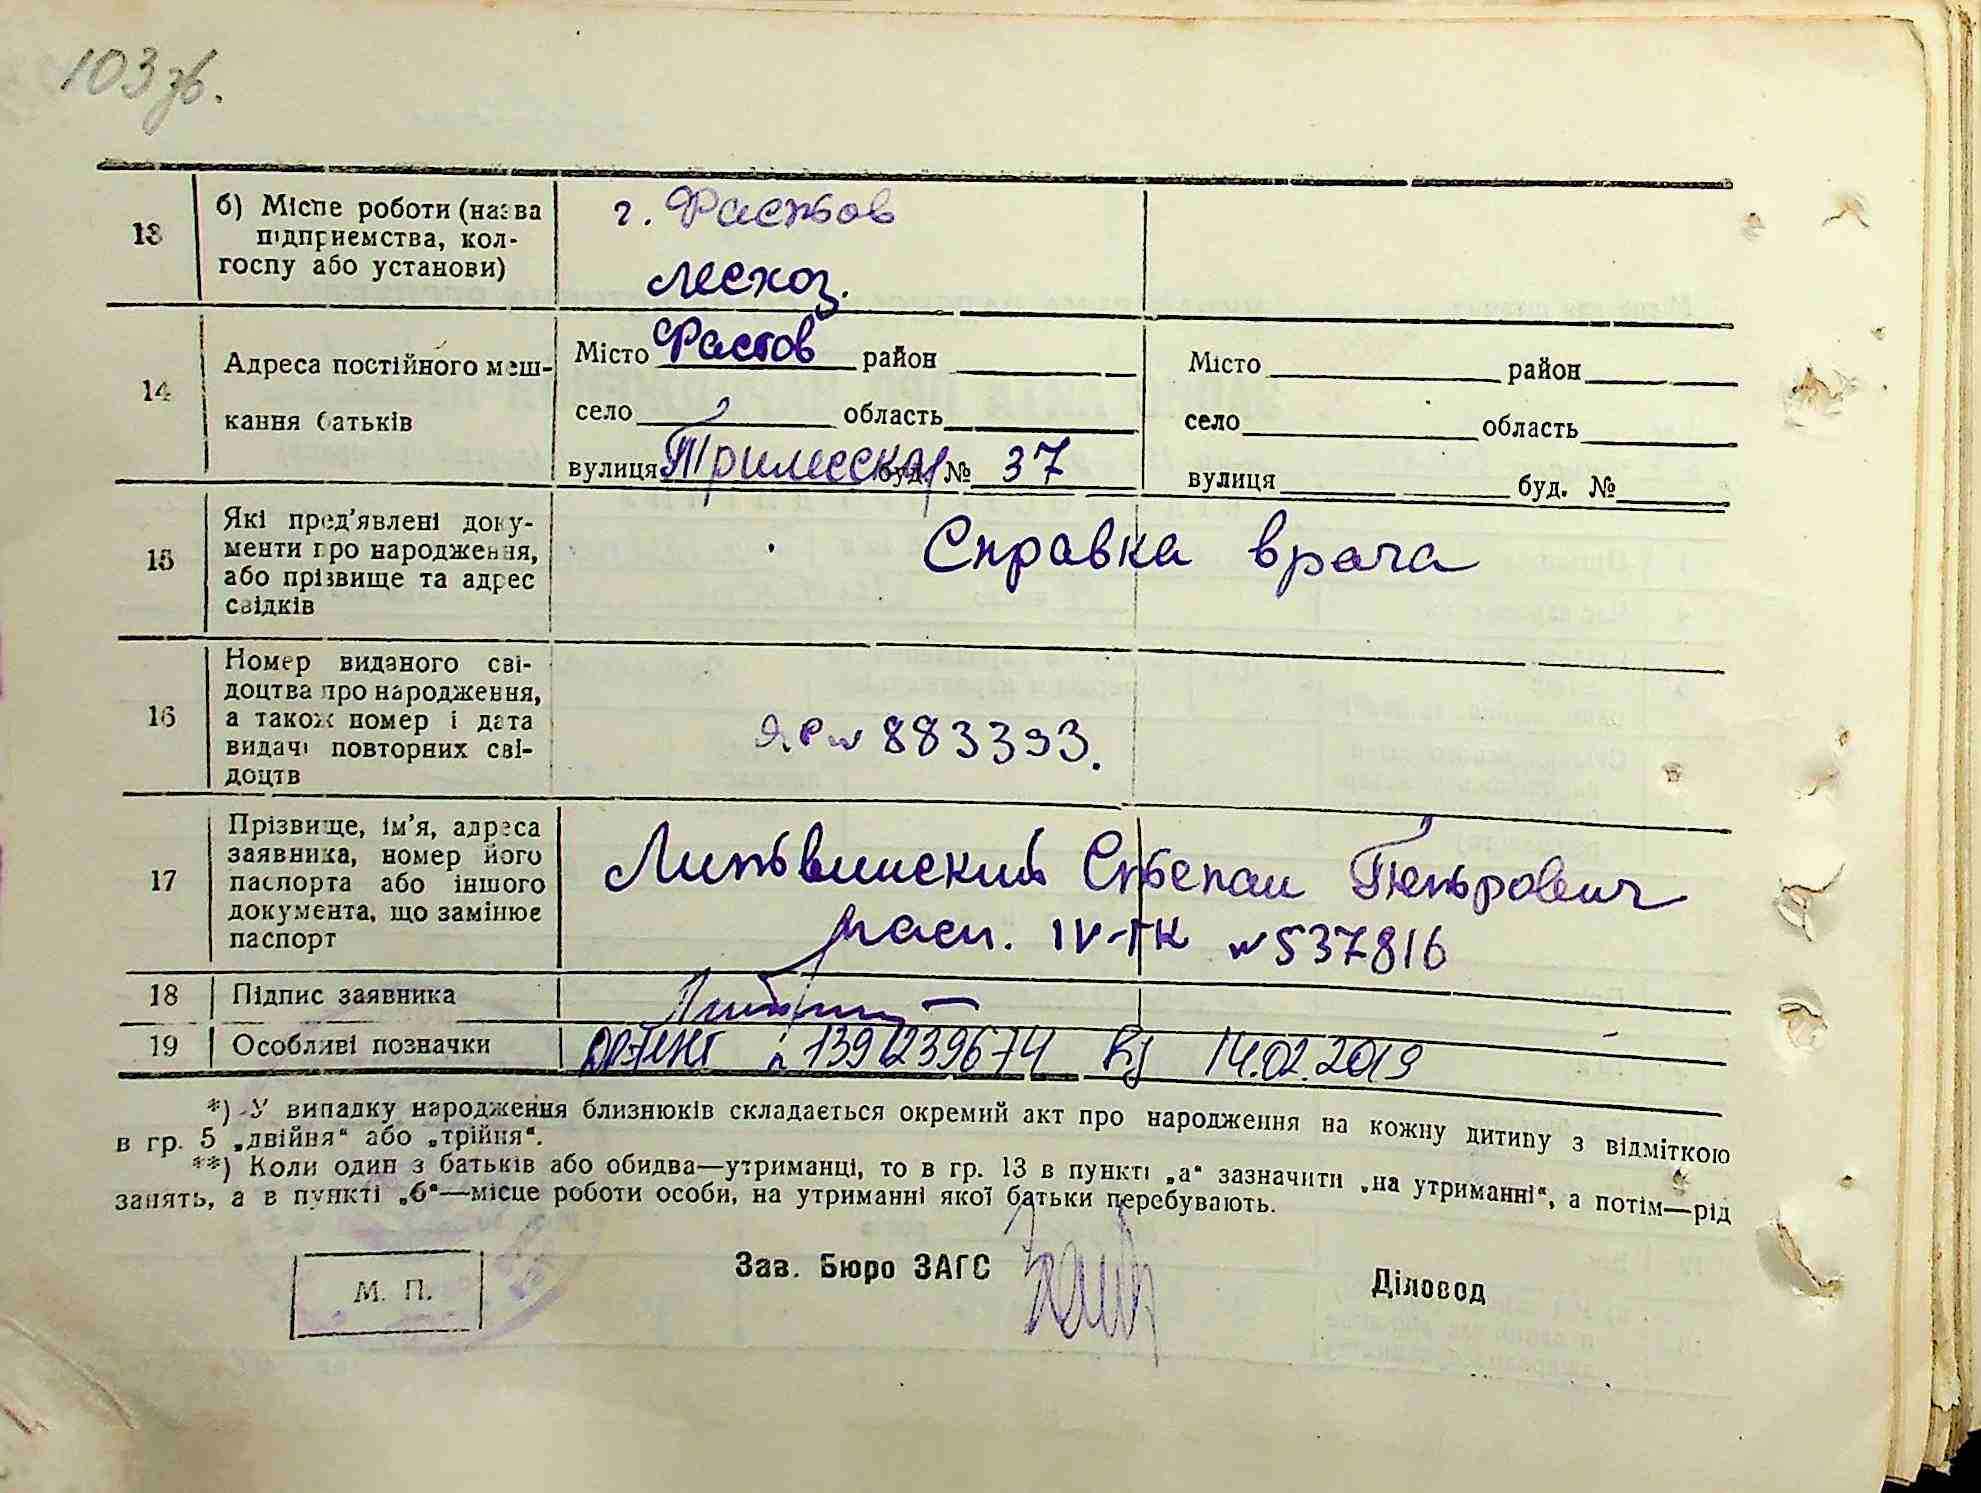 103 зв.
13
б) Місце роботи (назва
підприємства, кол-
госпу або установи)
г. Фастов
лесхоз.
14
Адреса постійного меш-
кання батьків
Місто Фастов район
село область
вулиця Прилесская буд. № 37
Місто район
село область
вулиця буд. №
15
Які пред'явлені доку-
менти про народження,
або прізвище та адрес
свідків
Справка врача
16
Номер виданого сві-
доцтва про народження,
а також номер і дата
видачі повторних сві-
доцтв
№ 883393.
17
Прізвище, ім'я, адреса
заявника, номер його
паспорта або іншого
документа, що замінює
паспорт
Литвинский Степан Петрович
пасп. IV-ГК № 537816
18
Підпис заявника
19
Особливі позначки
14.02.2019
*) У випадку народження близнюків складається окремий акт про народження на кожну дитину з відміткою
в гр. 5 „двійня“ або „трійня“.
**) Коли один з батьків або обидва—утриманці, то в гр. 13 в пункті „а“ зазначити „на утриманні“, а потім—рід
занять, а в пункті „б“—місце роботи особи, на утриманні якої батьки перебувають.
М. П.
Зав. Бюро ЗАГС
Діловод